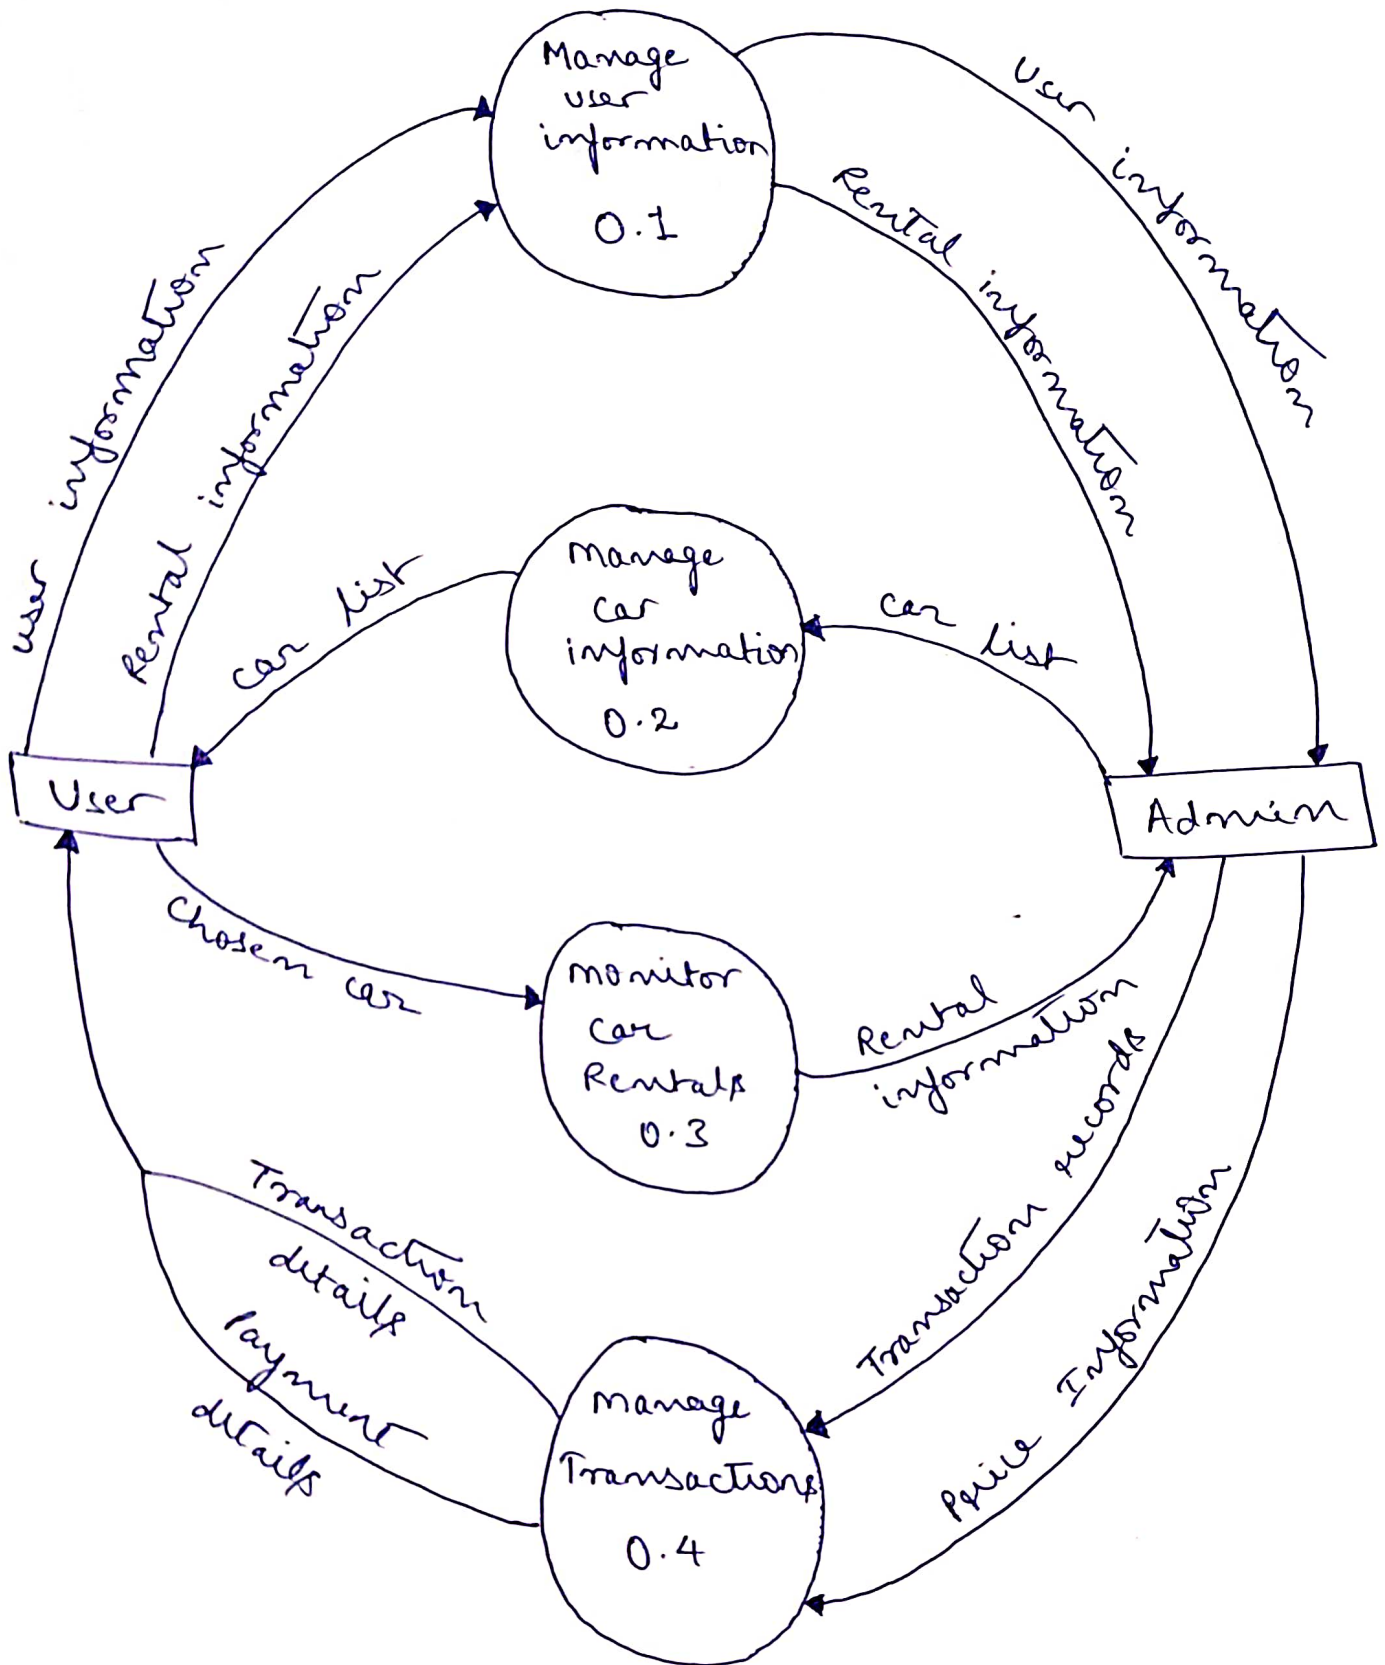 Manage
user
information
0.1
User information
Rental information
user information
Rental information
manage
car
information
0.2
car list
car list
User
Admin
Chosen car
monitor
car
Rentals
0.3
Rental
information
Transaction records
Price Information
Transaction
details
Payment
details
manage
Transactions
0.4